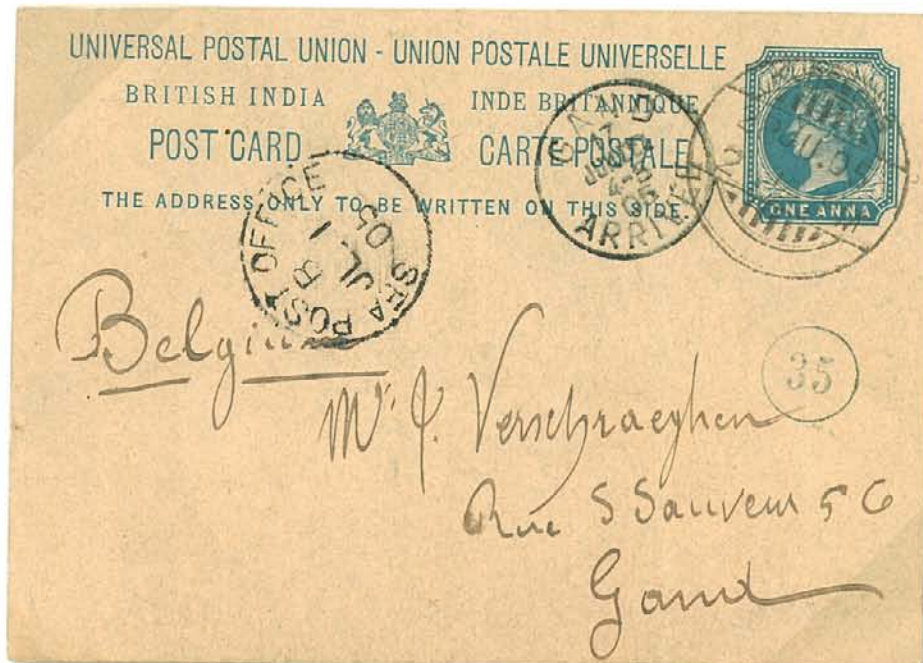 UNIVERSAL POSTAL UNION - UNION POSTALE UNIVERSELLE
BRITISH INDIA INDE BRITANNIQUE
POST CARD CARTE POSTALE
THE ADDRESS ONLY TO BE WRITTEN ON THIS SIDE.
ONE ANNA
GAND
ARRIVEE
SEA POST OFFICE
B
1 JL 05
Belgium
35
Mr J. Verschraeghen
Rue S Sauveur 56
Gand